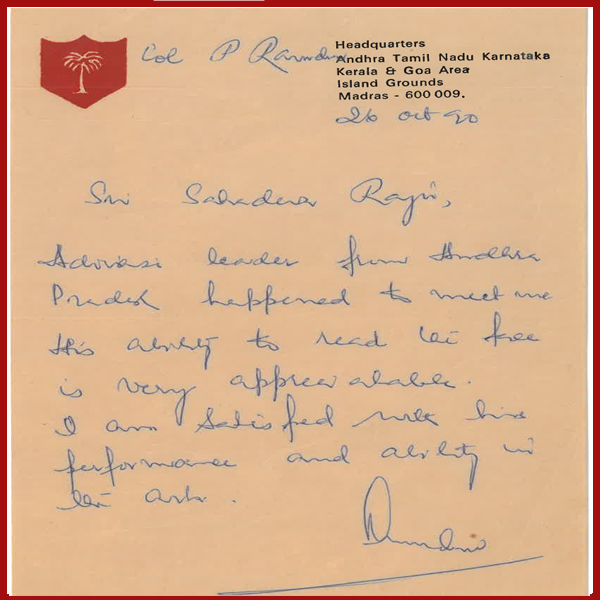 Col P Ravindran
Headquarters
Andhra Tamil Nadu Karnataka
Kerala & Goa Area
Island Grounds
Madras - 600 009.
26 Oct 90
Sri Sahadeva Raju,
Adivasi leader from Andhra
Pradesh happened to meet me
His ability to read the face
is very
I am Satisfied with his
performance and ability in
the